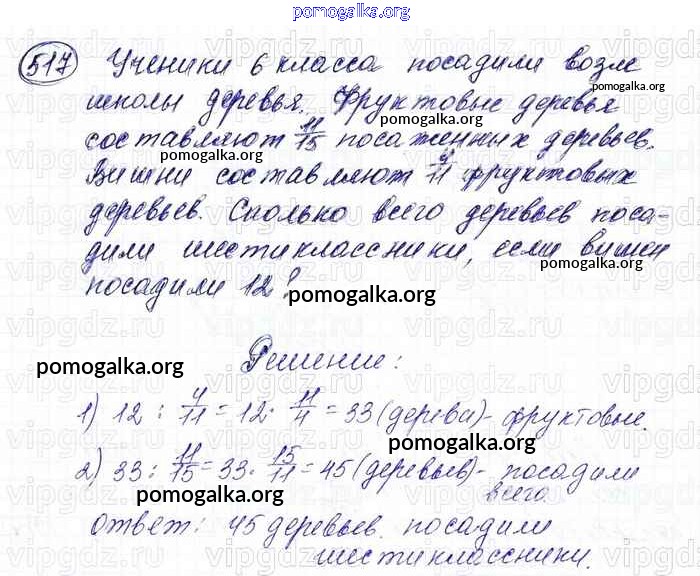 pomogalka.org
517 Ученики 6 класса посадили возле
школы деревья. Фруктовые деревья
pomogalka.org
составляют 11/15 посаженных деревьев.
pomogalka.org
pomogalka.org
Вишни составляют 4/11 фруктовых
деревьев. Сколько всего деревьев поса-
дили шестиклассники, если вишен
pomogalka.org
посадили 12?
pomogalka.org
Решение:
pomogalka.org
1) 12 : 4/11 = 12 · 11/4 = 33 (дерева) - фруктовые.
pomogalka.org
2) 33 : 11/15 = 33 · 15/11 = 45 (деревьев) - посадили
всего
pomogalka.org
pomogalka.org
ответ: 45 деревьев посадили
шестиклассники.
vipgdz.ru